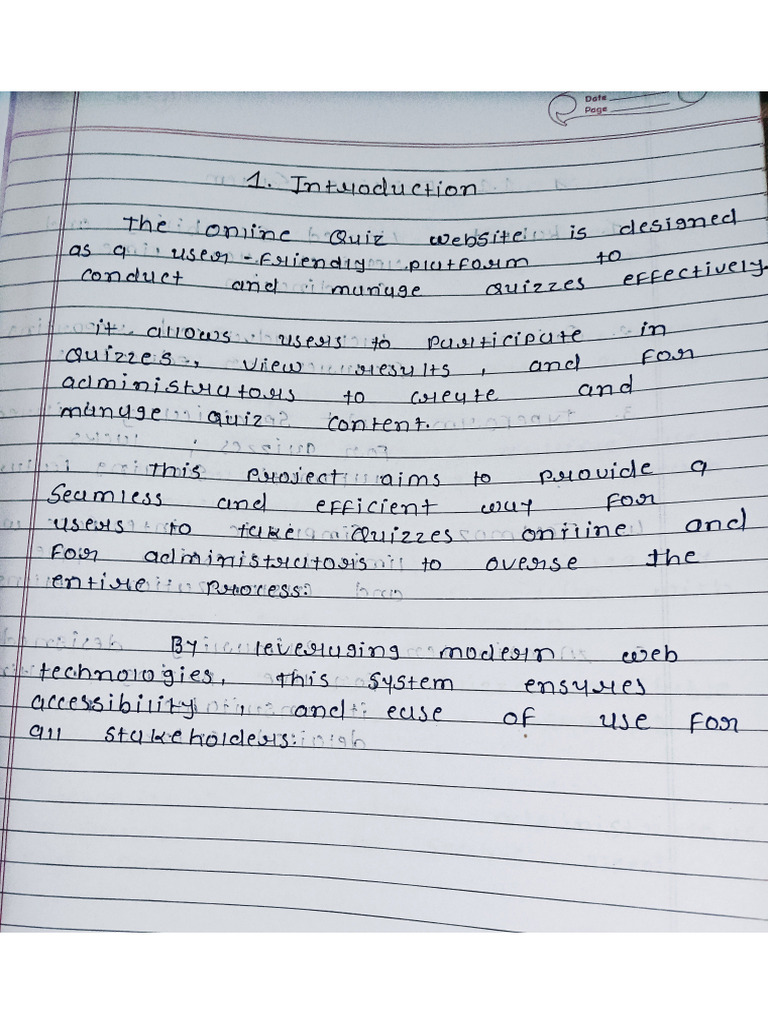 Date
Page
1. Introduction
The online Quiz website is designed
as a user-friendly platform to
conduct and manage quizzes effectively.
it allows users to participate in
quizzes, view results, and for
administrators to create and
manage quiz content.
This project aims to provide a
seamless and efficient way for
users to take quizzes online and
for administrators to overse the
entire process.
By leveraging modern web
technologies, this system ensures
accessibility and ease of use for
all stakeholders.